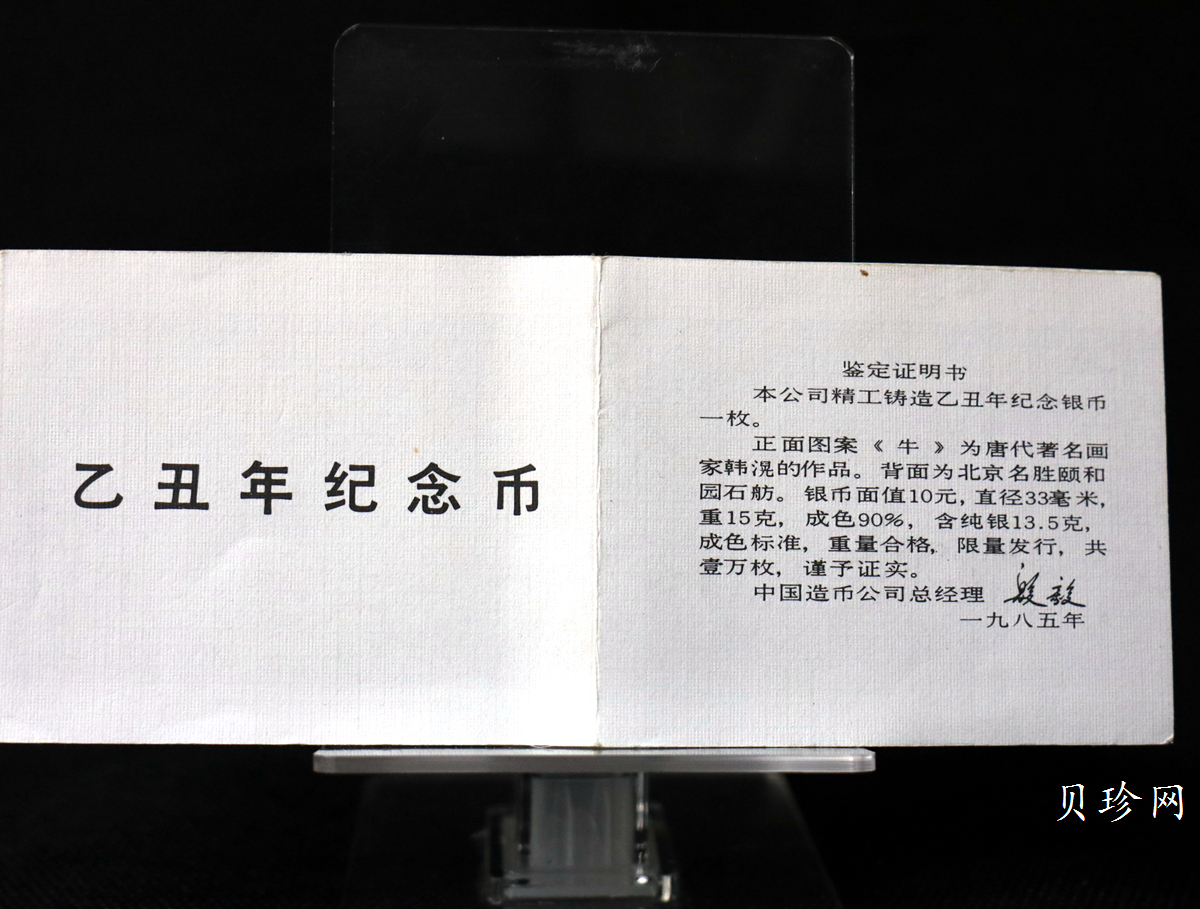 乙丑年纪念币
鉴定证明书
本公司精工铸造乙丑年纪念银币
一枚。
正面图案《牛》为唐代著名画
家韩滉的作品。背面为北京名胜颐和
园石舫。银币面值10元,直径33毫米,
重15克,成色90%,含纯银13.5克,
成色标准,重量合格,限量发行,共
壹万枚,谨予证实。
中国造币公司总经理
一九八五年
贝珍网